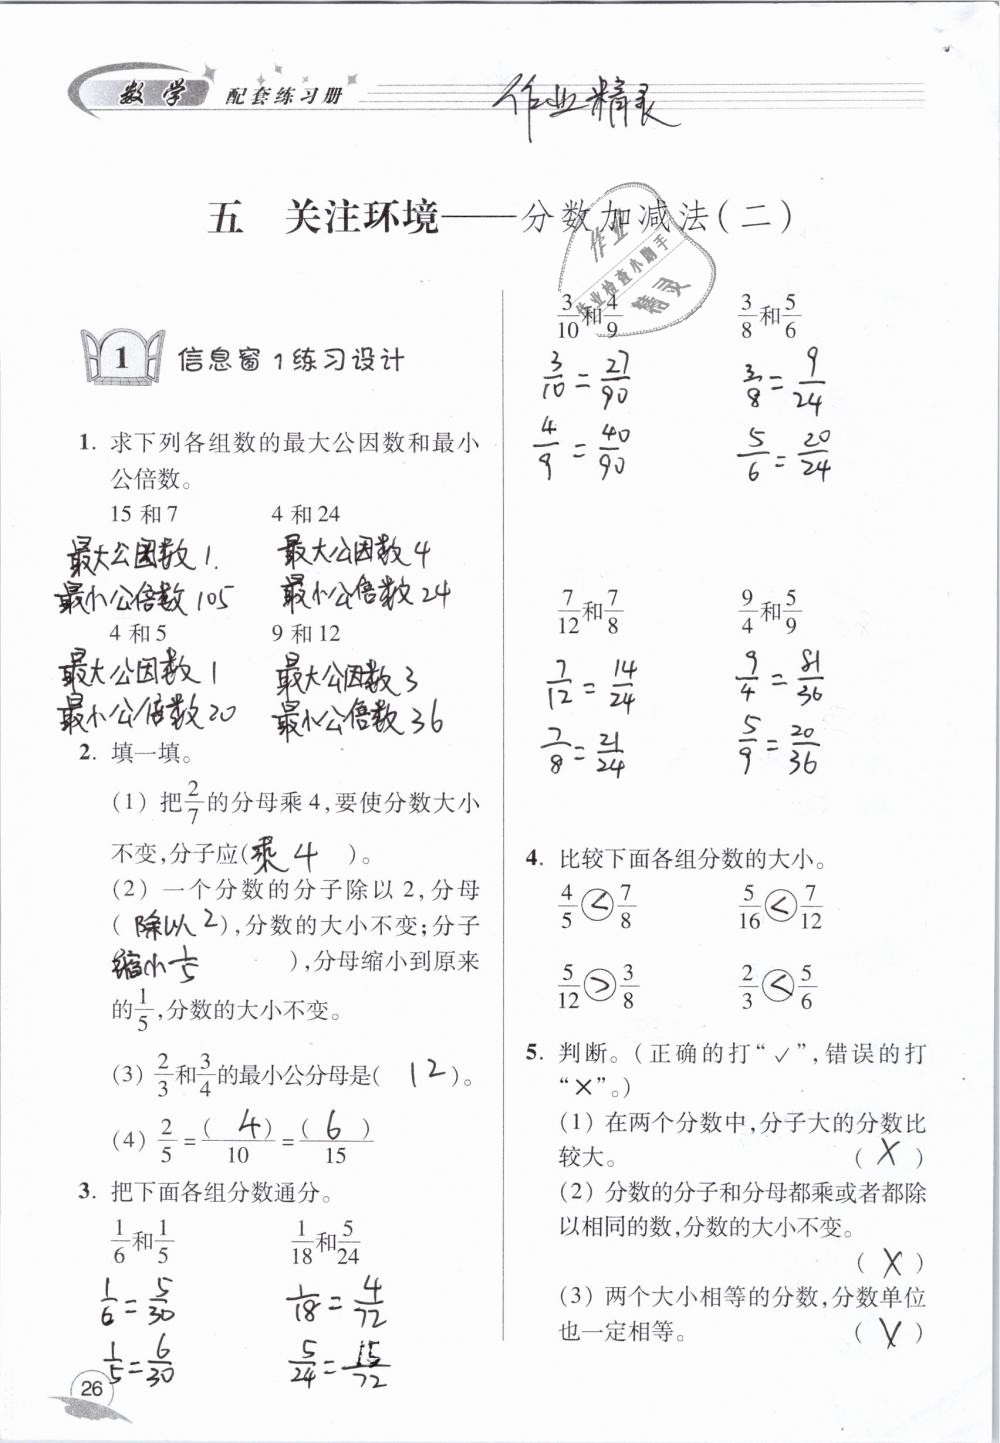 数学 配套练习册
作业精灵
五 关注环境——分数加减法(二)
作业
作业检查小助手
精灵
1 信息窗1练习设计
1. 求下列各组数的最大公因数和最小
公倍数。
15和7 4和24
最大公因数1. 最大公因数4
最小公倍数105 最小公倍数24
4和5 9和12
最大公因数1 最大公因数3
最小公倍数20 最小公倍数36
2. 填一填。
(1) 把2/7的分母乘4,要使分数大小
不变,分子应(乘4)。
(2) 一个分数的分子除以2,分母
(除以2),分数的大小不变;分子
缩小1/5),分母缩小到原来
的1/5,分数的大小不变。
(3) 2/3和3/4的最小公分母是(12)。
(4) 2/5=(4)/10=(6)/15
3. 把下面各组分数通分。
1/6和1/5 1/18和5/24
1/6=5/30 1/18=4/72
1/5=6/30 5/24=15/72
26
3/10和4/9 3/8和5/6
3/10=27/90 3/8=9/24
4/9=40/90 5/6=20/24
7/12和7/8 9/4和5/9
7/12=14/24 9/4=81/36
7/8=21/24 5/9=20/36
4. 比较下面各组分数的大小。
4/5<7/8 5/16<7/12
5/12>3/8 2/3<5/6
5. 判断。(正确的打“✓”,错误的打
“×”。)
(1) 在两个分数中,分子大的分数比
较大。 (×)
(2) 分数的分子和分母都乘或者都除
以相同的数,分数的大小不变。
(×)
(3) 两个大小相等的分数,分数单位
也一定相等。 (✓)